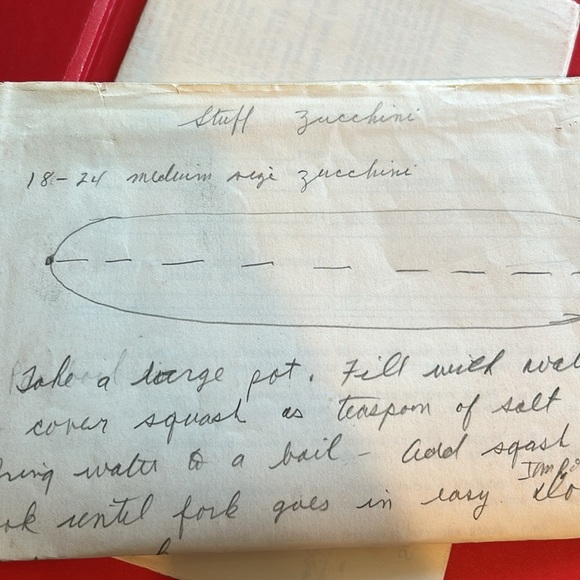 Stuff Zucchini
18-24 medium size zucchini
Take a large pot. Fill with wat
cover squash as teaspoon of salt
ring water to a boil - add sqash
ok until fork goes in easy.